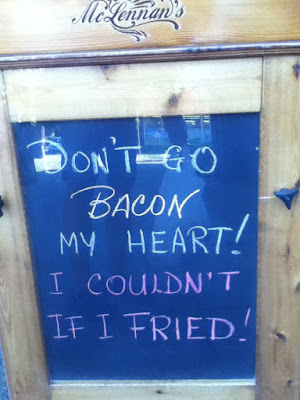 McLennan's
DON'T GO
BACON
MY HEART!
I COULDN'T
IF I FRIED!